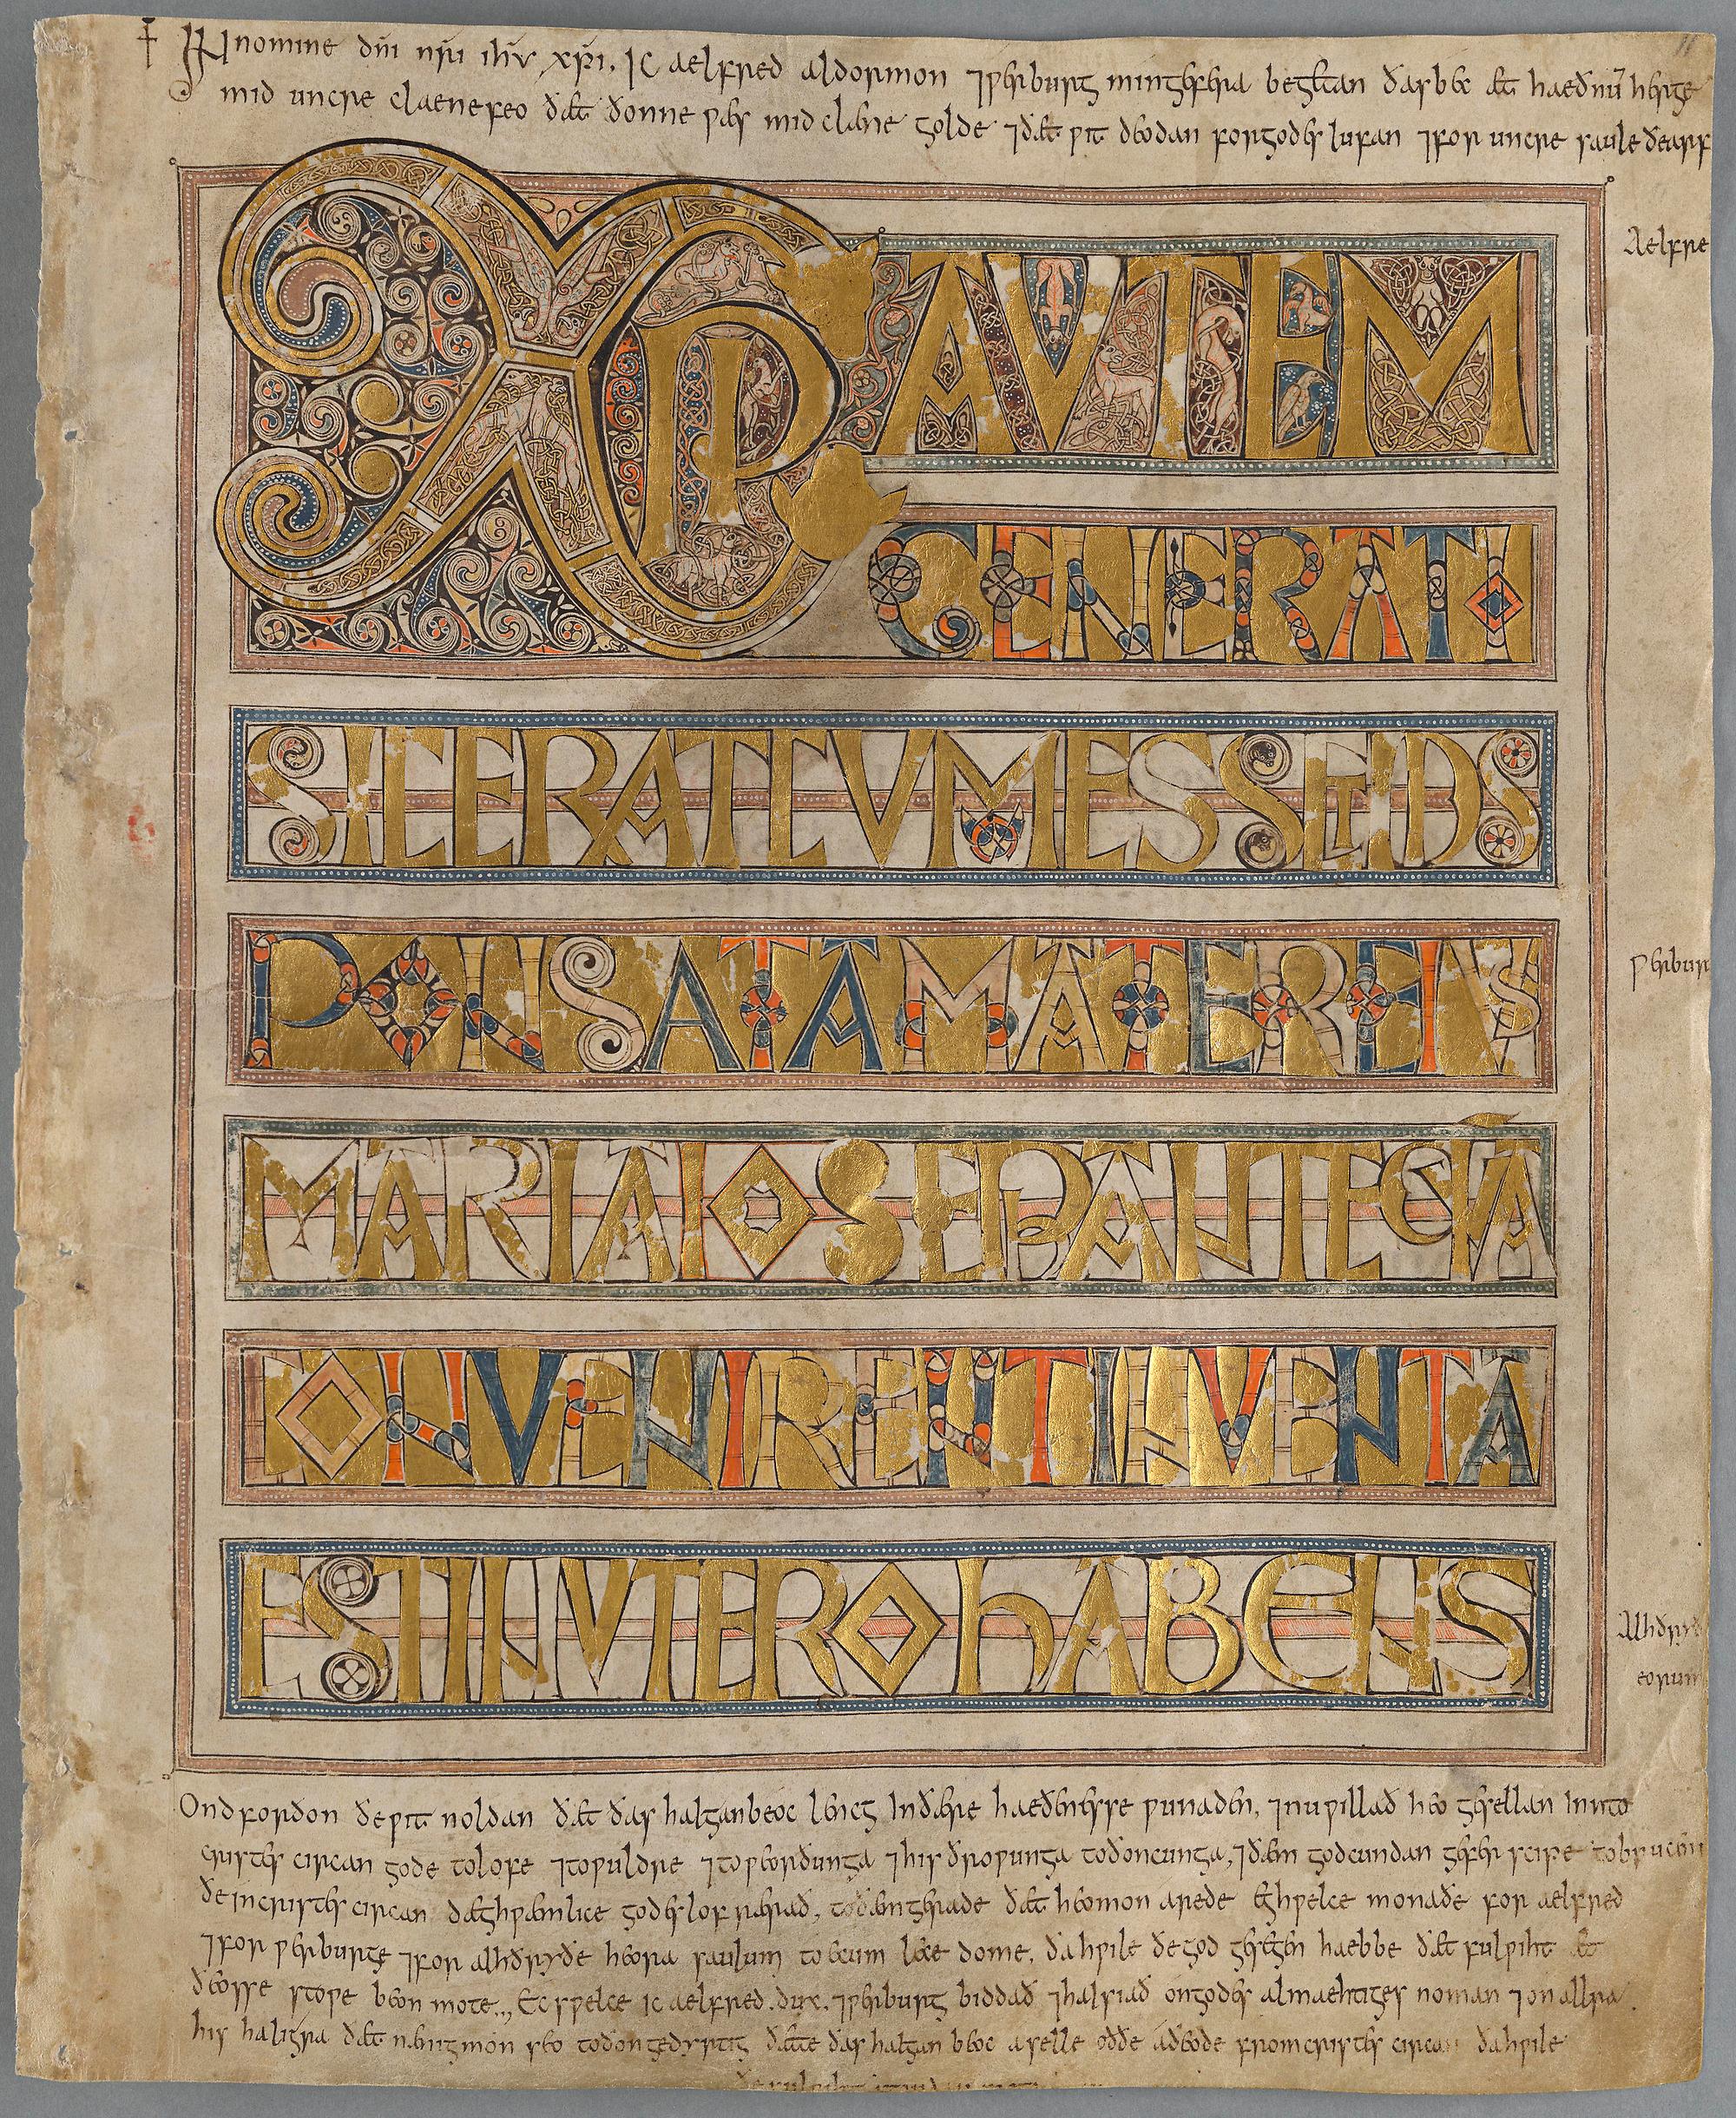 ✝ IN nomine dñi nŕi ihu xp̄i. Ic aelfred aldormon ⁊ ƿerburg min gefera begetan ðas bec æt haeðnū herge
mid uncre claene feo ðæt ðonne ƿæs mid claene golde ⁊ ðæt ƿit deodan for godes lufan ⁊ for uncre saule ðearf
Aelfre
XPI AUTEM
GENERATI
SIC ERAT CUM ESSET DIS
PONSATA MATER EIUS
MARIA IOSEP ANTEQUA
CONVENIRENT INVENTA
EST IN UTERO HABENS
ƿerbur
Alhðryð
eorum
Ond forðon ðe ƿit noldan ðæt ðas halgan beoc lencg in ðære haeðenesse ƿunaden, ⁊ nu ƿillað heo gesellan inn to
cristes circan gode to lofe ⁊ to ƿuldre ⁊ to ƿeorðunga ⁊ his ðroƿunga to ðoncunga, ⁊ ðæm godcundan geferscipe to brucen
ðe in cristes circan dæghƿæmlice godes lof rærað, to ðæm gerade ðæt heo mon arede eghƿelce monaðe for aelfred
⁊ for ƿerburge ⁊ for alhðryðe heora saulum to ecum lecedome, ða hƿile ðe god gesegen haebbe ðæt fulƿiht æt
ðeosse stoƿe beon mote. Ec sƿelce ic aelfred. dux. ⁊ ƿerburg biddað ⁊ halsiað on godes almaehtiges noman ⁊ on allra
his haligra ðæt nænig mon seo to ðon gedyrstig ðætte ðas halgan beoc aselle oððe aðeode from cristes circan ða hƿile